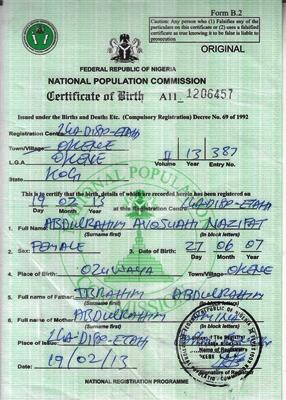 Form B.2
Caution: Any person who (1) Falsifies any of the
particulars on this certificate or (2) uses a falsified
certificate as true knowing it to be false is liable to
prosecution
ORIGINAL
FEDERAL REPUBLIC OF NIGERIA
NATIONAL POPULATION COMMISSION
Certificate of Birth A11_ 1206457
Issued under the Births and Deaths Etc. (Compulsory Registration) Decree No. 69 of 1992
Registration Centre
Town/Village OKENE
L.G.A OKENE 13 387
Vol. Entry No.
State KOGI
This is to certify that the birth, details of which are recorded herein has been registered on
19 02 13
at this Registration Centre
Day Month Year
1. Full Name ABDULRAHIM AVOSUAHI NAZIFAT
(Surname first) (In block letters)
2. Sex: FEMALE 3. Date of Birth: 27 06 07
Day Month Year
4. Place of Birth: Town/Village OKENE
5. Full name of Father: IBRAHIM ABDULRAHIM
(Surname first) (In block letters)
6. Full name of Mother: ABDULRAHIM AMINAT
(Surname first) (In block letters)
Place of Issue:
Name of Registrar
Date: 19/02/13
Signature of Registrar
NATIONAL REGISTRATION PROGRAMME